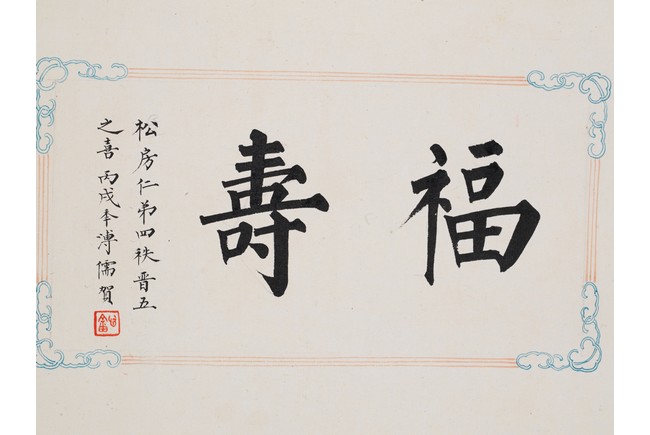 福壽
松房仁弟四秩晋五
之喜丙戌溥儒賀